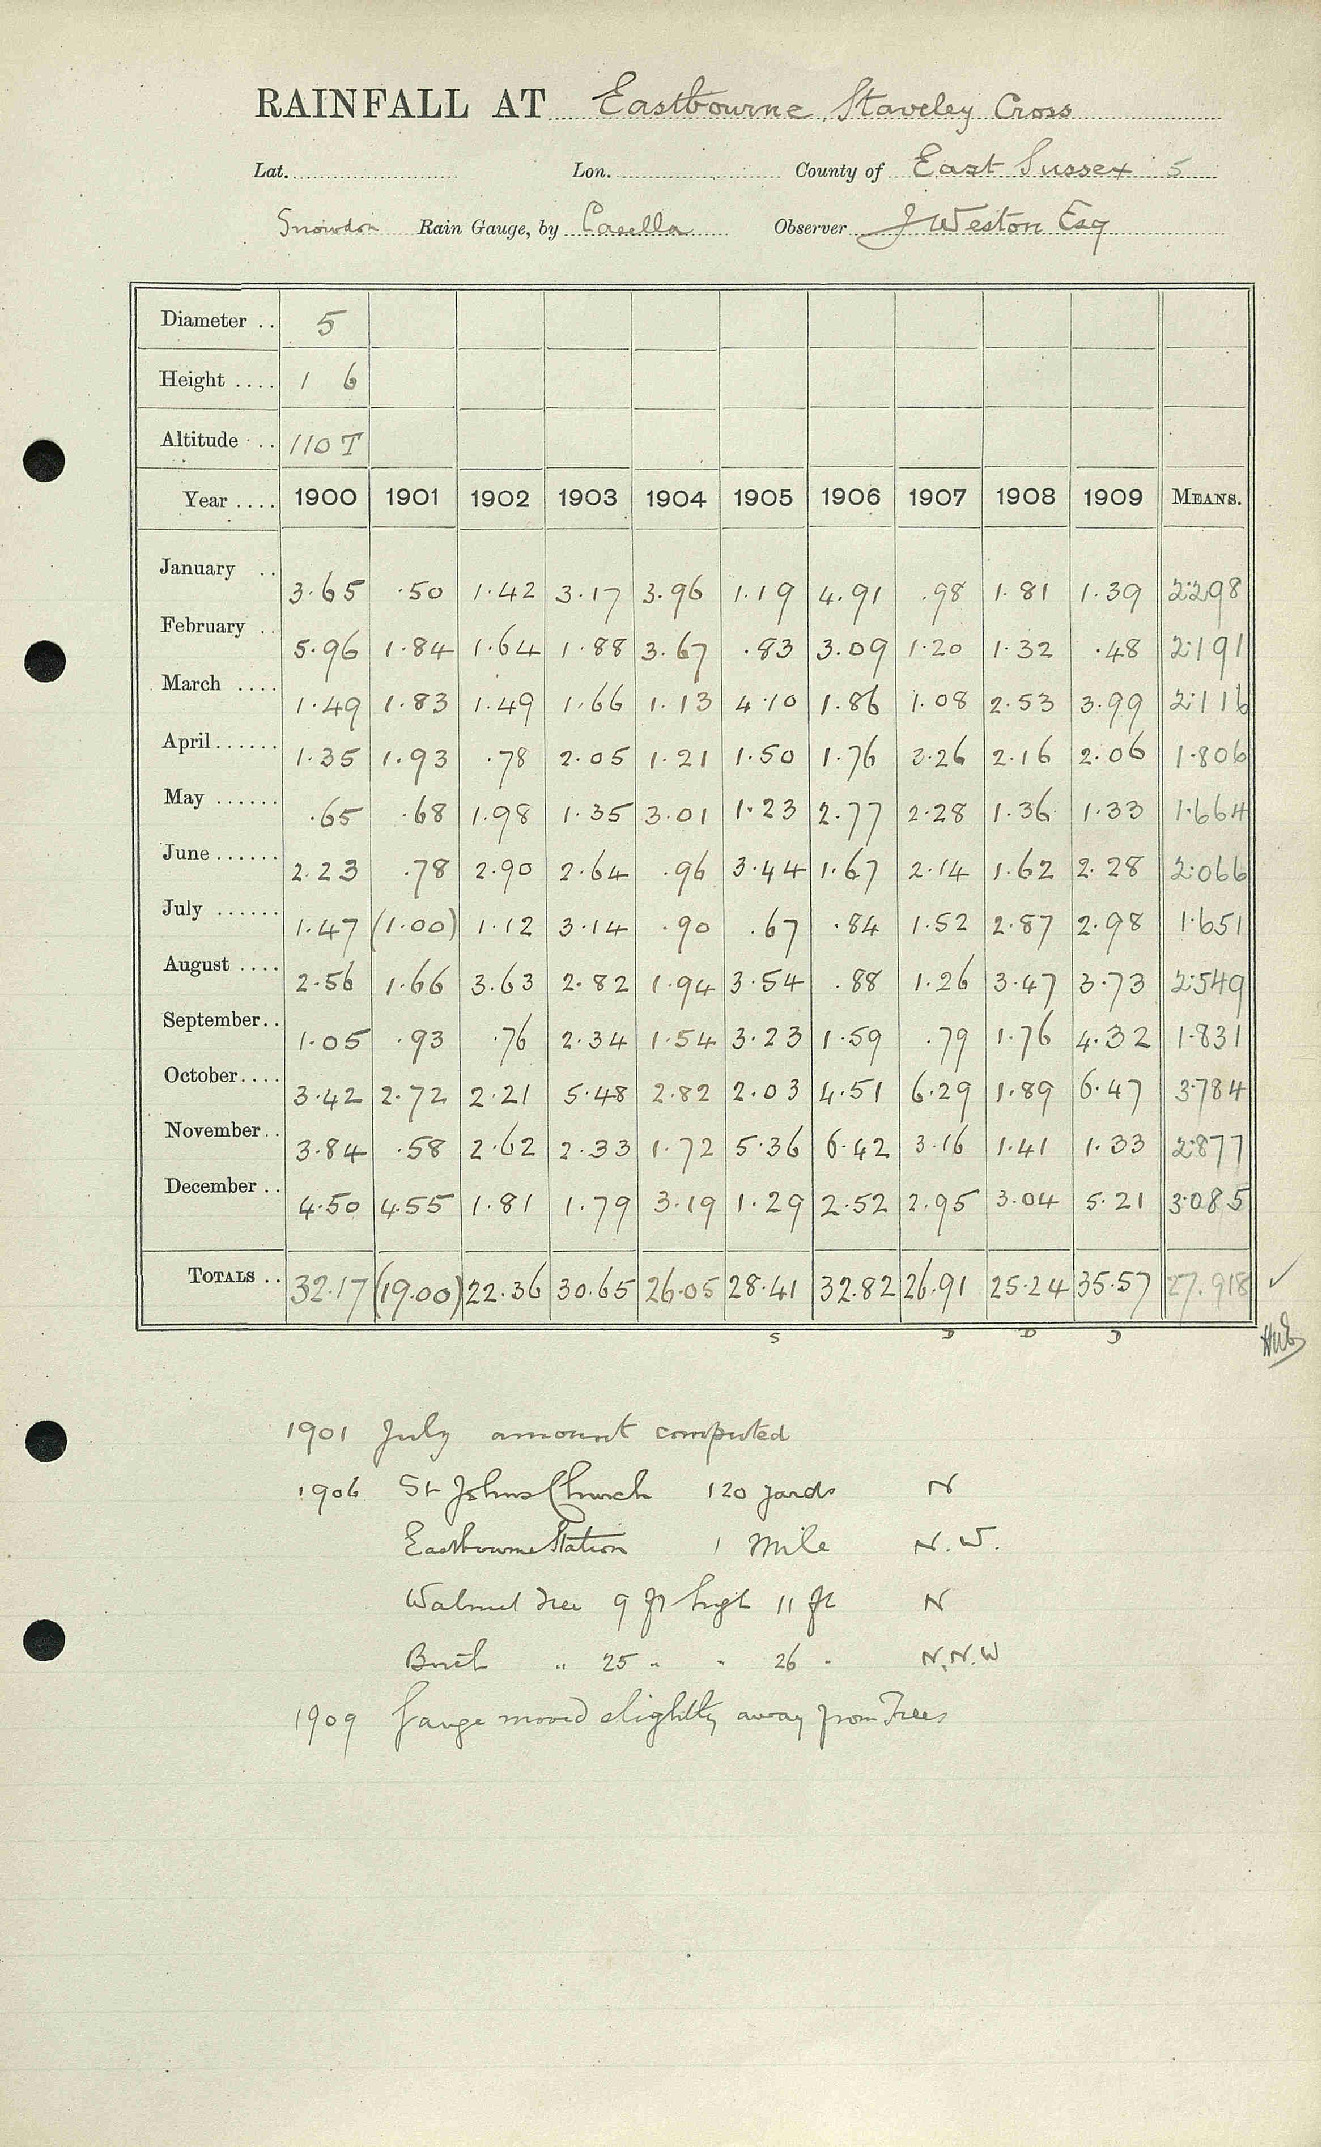 RAINFALL AT Eastbourne, Staveley Cross
Lat. Lon. County of East Sussex 5
Snowdon Rain Gauge, by Casella Observer J Weston Esq
Diameter .. 5
Height .... 1 6
Altitude .. 110 T
Year .... 1900 1901 1902 1903 1904 1905 1906 1907 1908 1909 MEANS.
January .. 3.65 .50 1.42 3.17 3.96 1.19 4.91 .98 1.81 1.39 2.298
February .. 5.96 1.84 1.64 1.88 3.67 .83 3.09 1.20 1.32 .48 2.191
March .... 1.49 1.83 1.49 1.66 1.13 4.10 1.86 1.08 2.53 3.99 2.116
April...... 1.35 1.93 .78 2.05 1.21 1.50 1.76 3.26 2.16 2.06 1.806
May ...... .65 .68 1.98 1.35 3.01 1.23 2.77 2.28 1.36 1.33 1.664
June...... 2.23 .78 2.90 2.64 .96 3.44 1.67 2.14 1.62 2.28 2.066
July ...... 1.47 (1.00) 1.12 3.14 .90 .67 .84 1.52 2.87 2.98 1.651
August .... 2.56 1.66 3.63 2.82 1.94 3.54 .88 1.26 3.47 3.73 2.549
September.. 1.05 .93 .76 2.34 1.54 3.23 1.59 .79 1.76 4.32 1.831
October.... 3.42 2.72 2.21 5.48 2.82 2.03 4.51 6.29 1.89 6.47 3.784
November.. 3.84 .58 2.62 2.33 1.72 5.36 6.42 3.16 1.41 1.33 2.877
December .. 4.50 4.55 1.81 1.79 3.19 1.29 2.52 2.95 3.04 5.21 3.085
TOTALS .. 32.17 (19.00) 22.36 30.65 26.05 28.41 32.82 26.91 25.24 35.57 27.918 ✓
S D D D
1901 July amount computed
1906 St Johns Church 120 yards N
Eastbourne Station 1 Mile N.W.
Walnut tree 9 ft high 11 ft N
Birch " 25 " " 26 " N.N.W
1909 Gauge moved slightly away from Trees